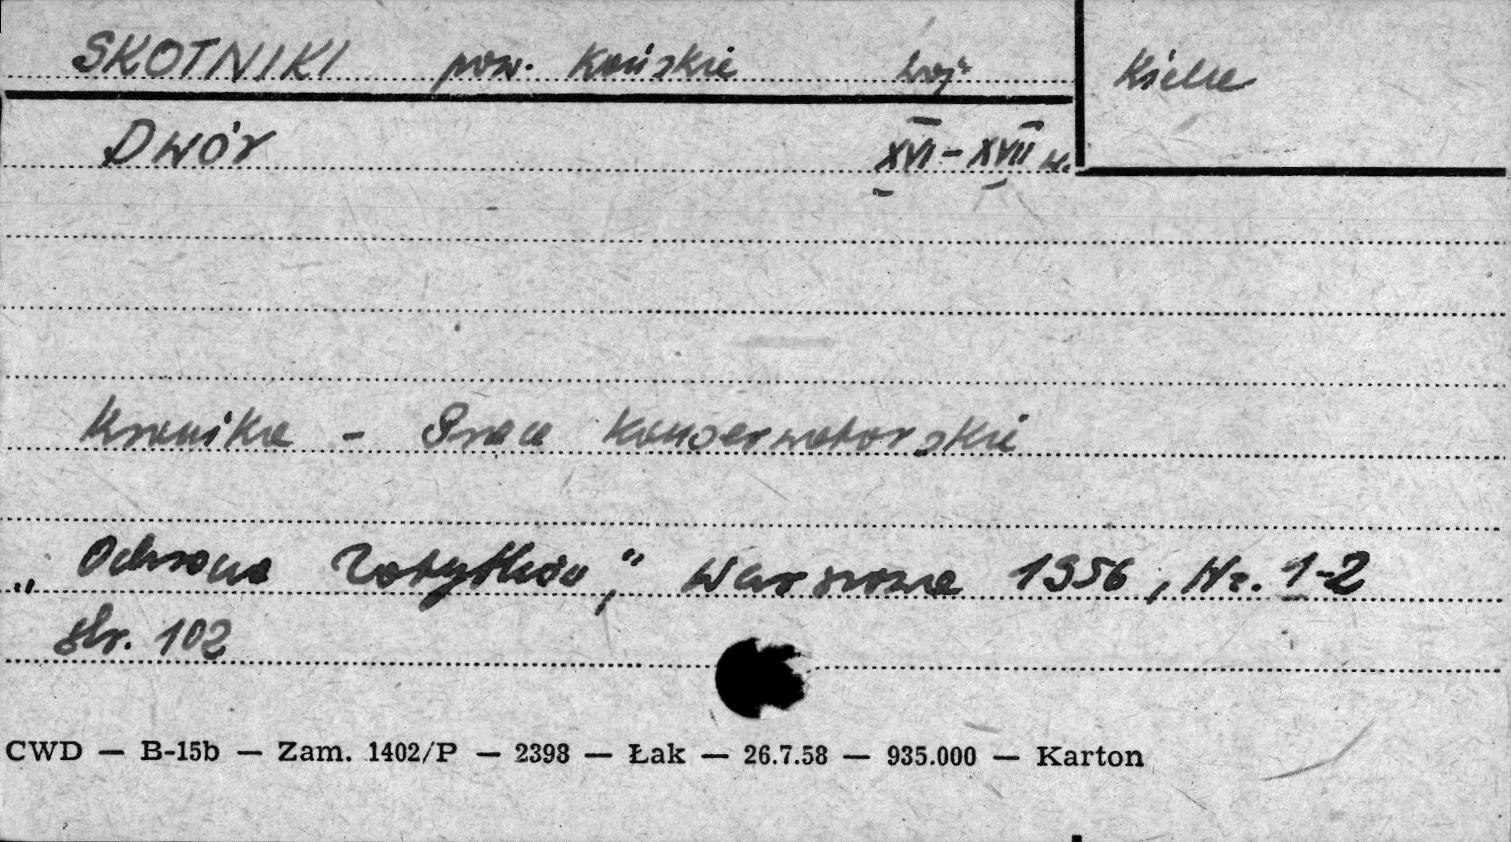 SKOTNIKI pow. Końskie woj. Kielce
Dwór XVI-XVII w.
Kronika - Prace Konserwatorskie
„Ochrona Zabytków," Warszawa 1956, Nr. 1-2
str. 102
CWD — B-15b — Zam. 1402/P — 2398 — Łak — 26.7.58 — 935.000 — Karton